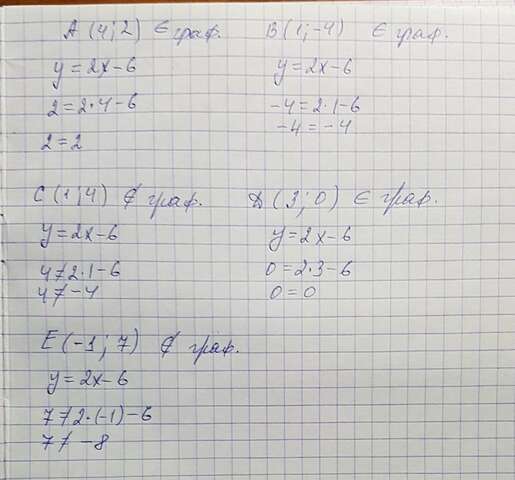 A (4; 2) ∈ граф.
y = 2x - 6
2 = 2·4 - 6
2 = 2
B (1; -4) ∈ граф.
y = 2x - 6
-4 = 2·1 - 6
-4 = -4
C (1; 4) ∉ граф.
y = 2x - 6
4 ≠ 2·1 - 6
4 ≠ -4
D (3; 0) ∈ граф.
y = 2x - 6
0 = 2·3 - 6
0 = 0
E (-1; 7) ∉ граф.
y = 2x - 6
7 ≠ 2·(-1) - 6
7 ≠ -8